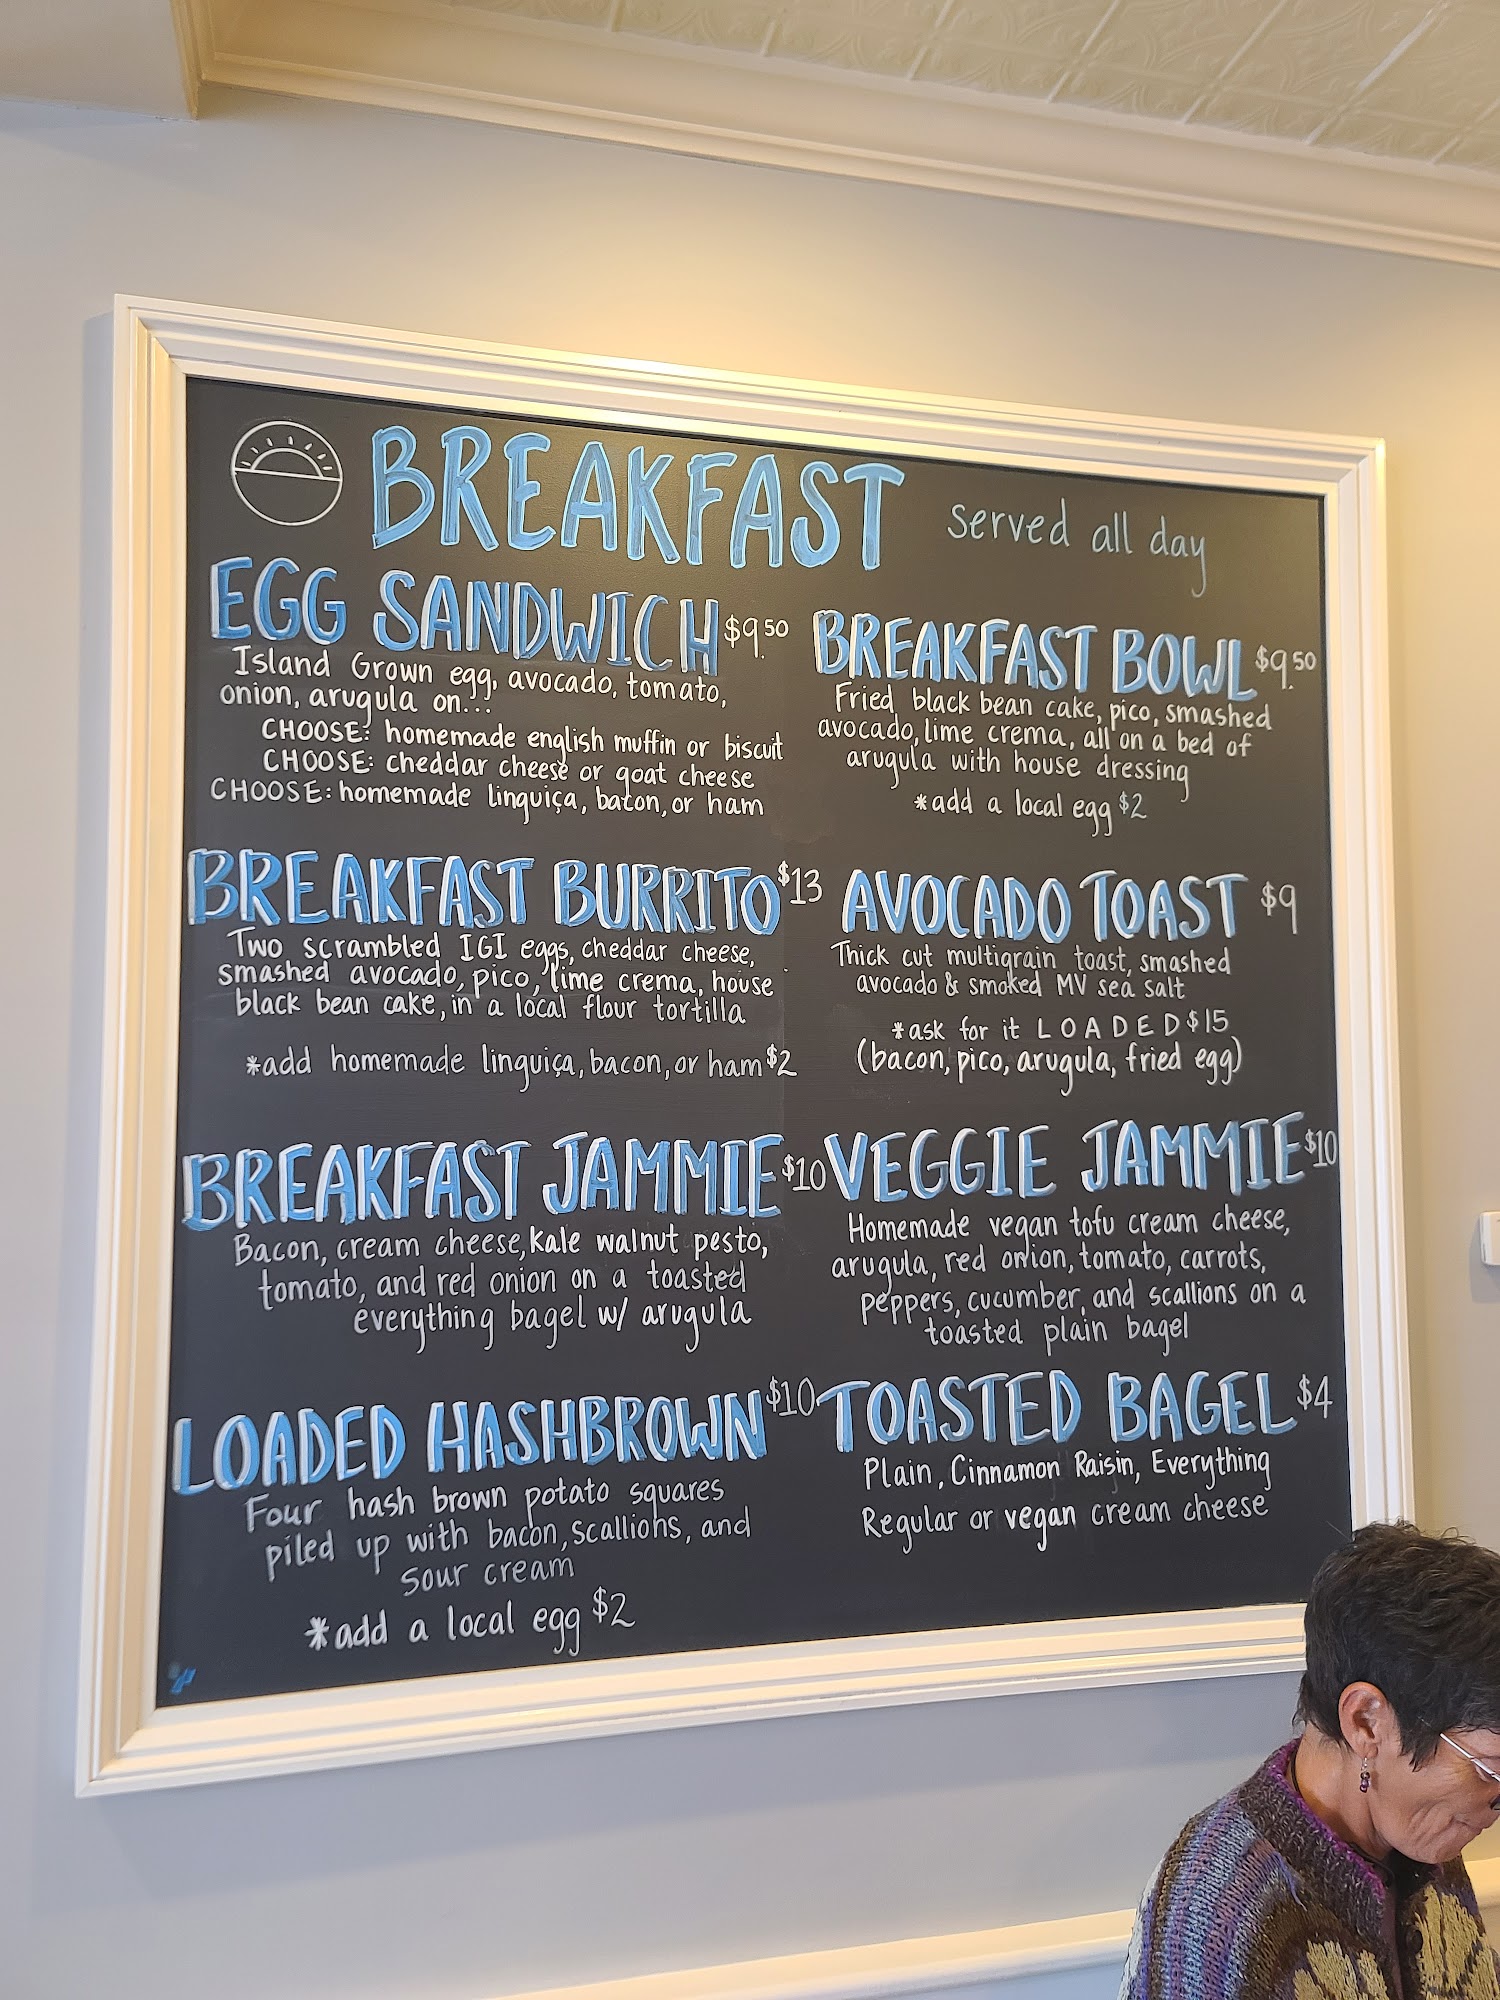 BREAKFAST served all day
EGG SANDWICH $9.50
Island Grown egg, avocado, tomato,
onion, arugula on...
CHOOSE: homemade english muffin or biscuit
CHOOSE: cheddar cheese or goat cheese
CHOOSE: homemade linguiça, bacon, or ham
BREAKFAST BOWL $9.50
Fried black bean cake, pico, smashed
avocado, lime crema, all on a bed of
arugula with house dressing
*add a local egg $2
BREAKFAST BURRITO $13
Two scrambled IGI eggs, cheddar cheese,
smashed avocado, pico, lime crema, house
black bean cake, in a local flour tortilla
*add homemade linguiça, bacon, or ham $2
AVOCADO TOAST $9
Thick cut multigrain toast, smashed
avocado & smoked MV sea salt
*ask for it LOADED $15
(bacon, pico, arugula, fried egg)
BREAKFAST JAMMIE $10
Bacon, cream cheese, kale walnut pesto,
tomato, and red onion on a toasted
everything bagel w/ arugula
VEGGIE JAMMIE $10
Homemade vegan tofu cream cheese,
arugula, red onion, tomato, carrots,
peppers, cucumber, and scallions on a
toasted plain bagel
LOADED HASHBROWN $10
Four hash brown potato squares
piled up with bacon, scallions, and
sour cream
*add a local egg $2
TOASTED BAGEL $4
Plain, Cinnamon Raisin, Everything
Regular or vegan cream cheese